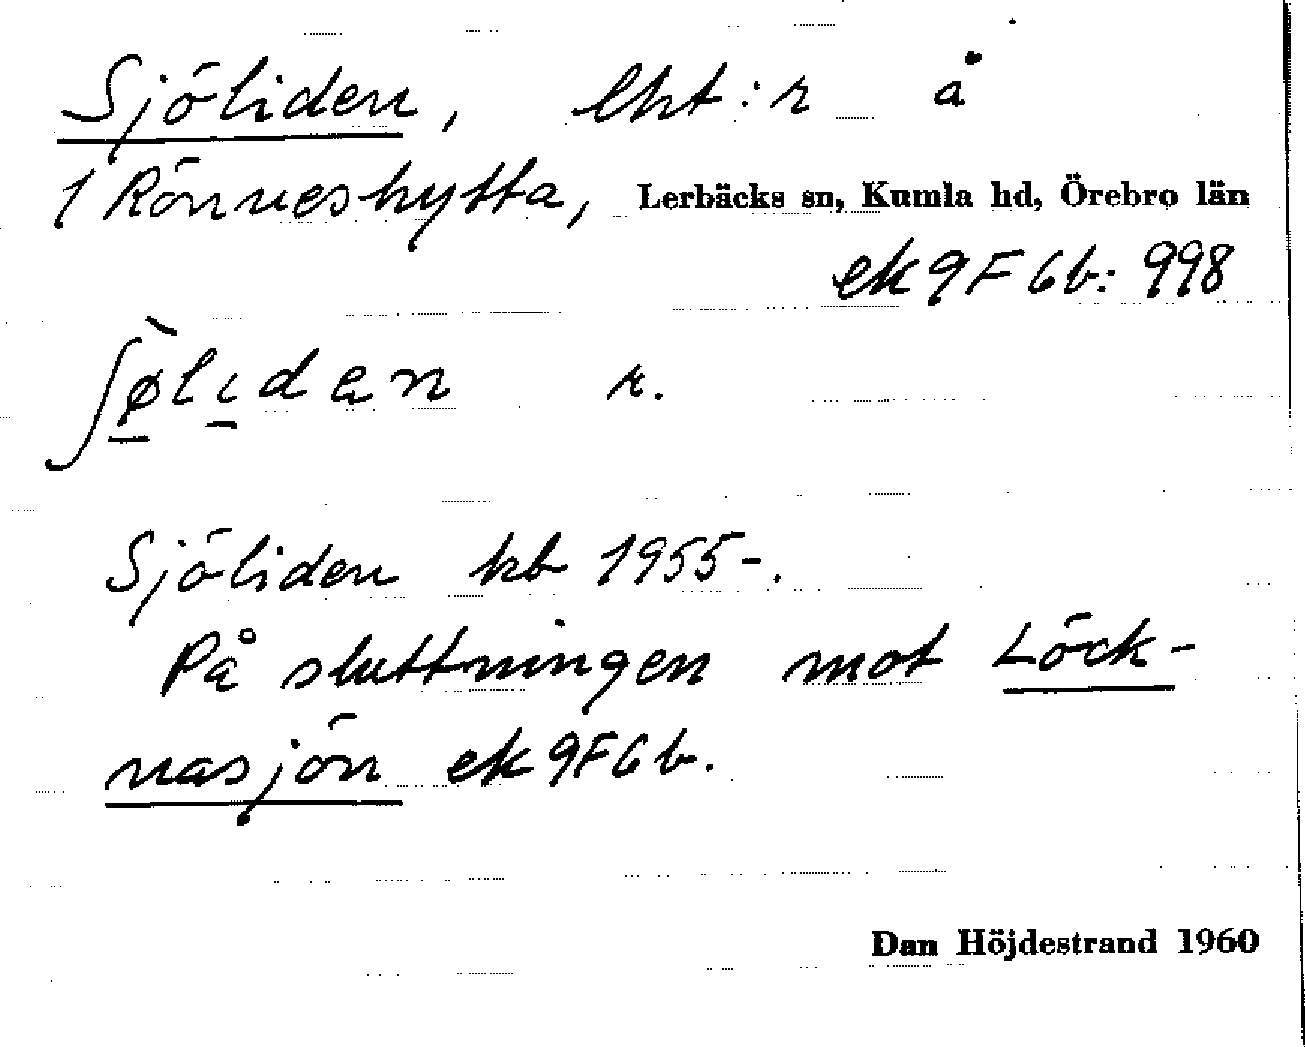 Sjöliden, lht:r å
1 Rönneshytta, Lerbäcks sn, Kumla hd, Örebro län
ek 9F 6b: 998
ʃø̀lıdan r.
Sjöliden kb 1955-.
På sluttningen mot Löck-
nasjön ek 9F6b.
Dan Höjdestrand 1960